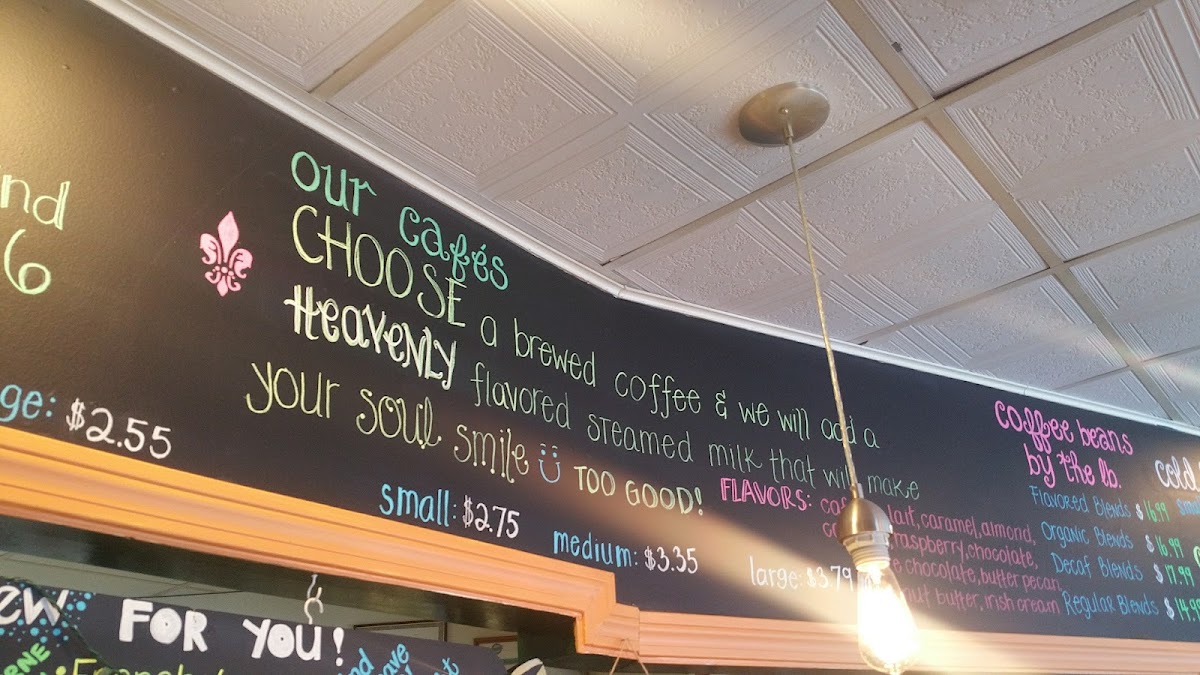 nd
6
ge: $2.55
our cafés
CHOOSE a brewed coffee & we will add a
HEAVENLY flavored steamed milk that will make
your soul smile TOO GOOD!
small: $2.75 medium: $3.35 large: $3.79
FLAVORS: lait, caramel, almond,
raspberry, chocolate,
chocolate, butter pecan
butter, irish cream
coffee beans
by the lb.
Flavored Blends $16.99
Organic Blends $16.99
Decaf Blends $17.99
Regular Blends $14.9
cold
sm
FOR YOU!